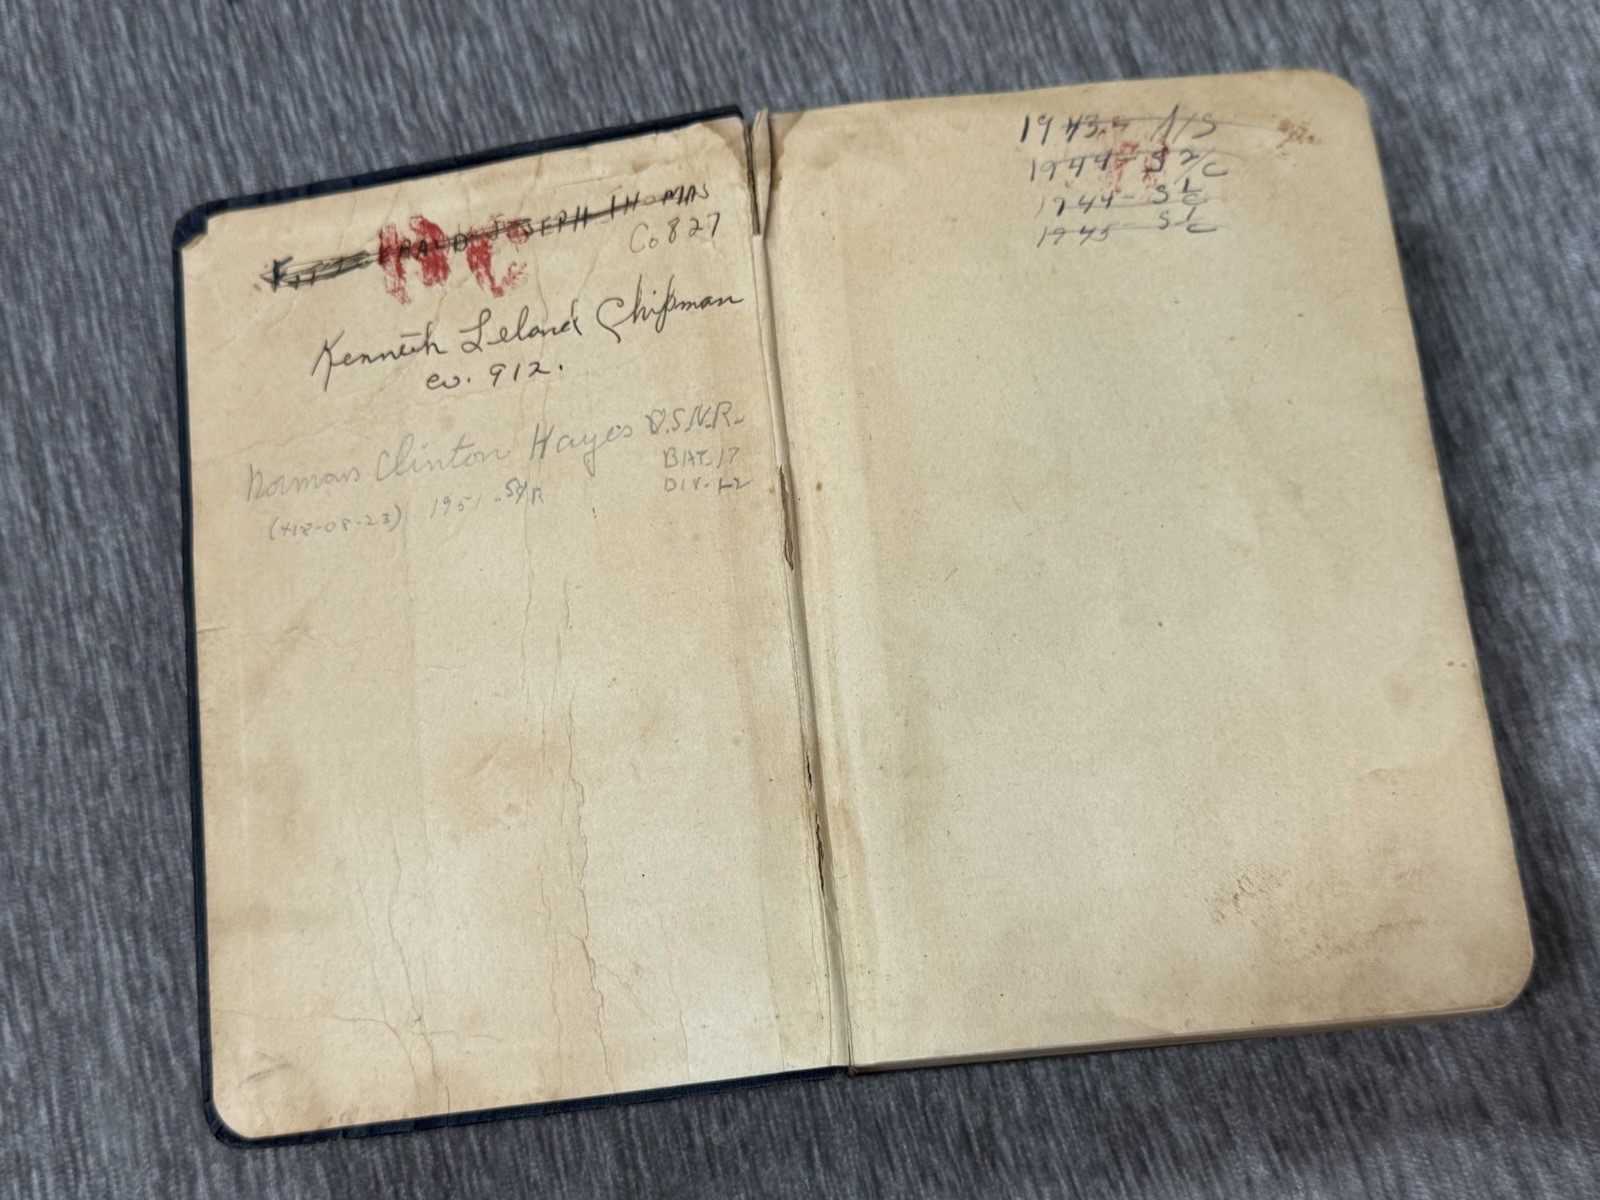 JOSEPH THOMAS
Co 827
Kenneth Leland Chipman
co. 912.
Norman Clinton Hayes U.S.N.R.
BAT. 17
DIV-12
(418-08-23) 1951 - SA/R
1943 - A/S
1944 - S 2/C
1944 - S 1/C
1945 S 1/C